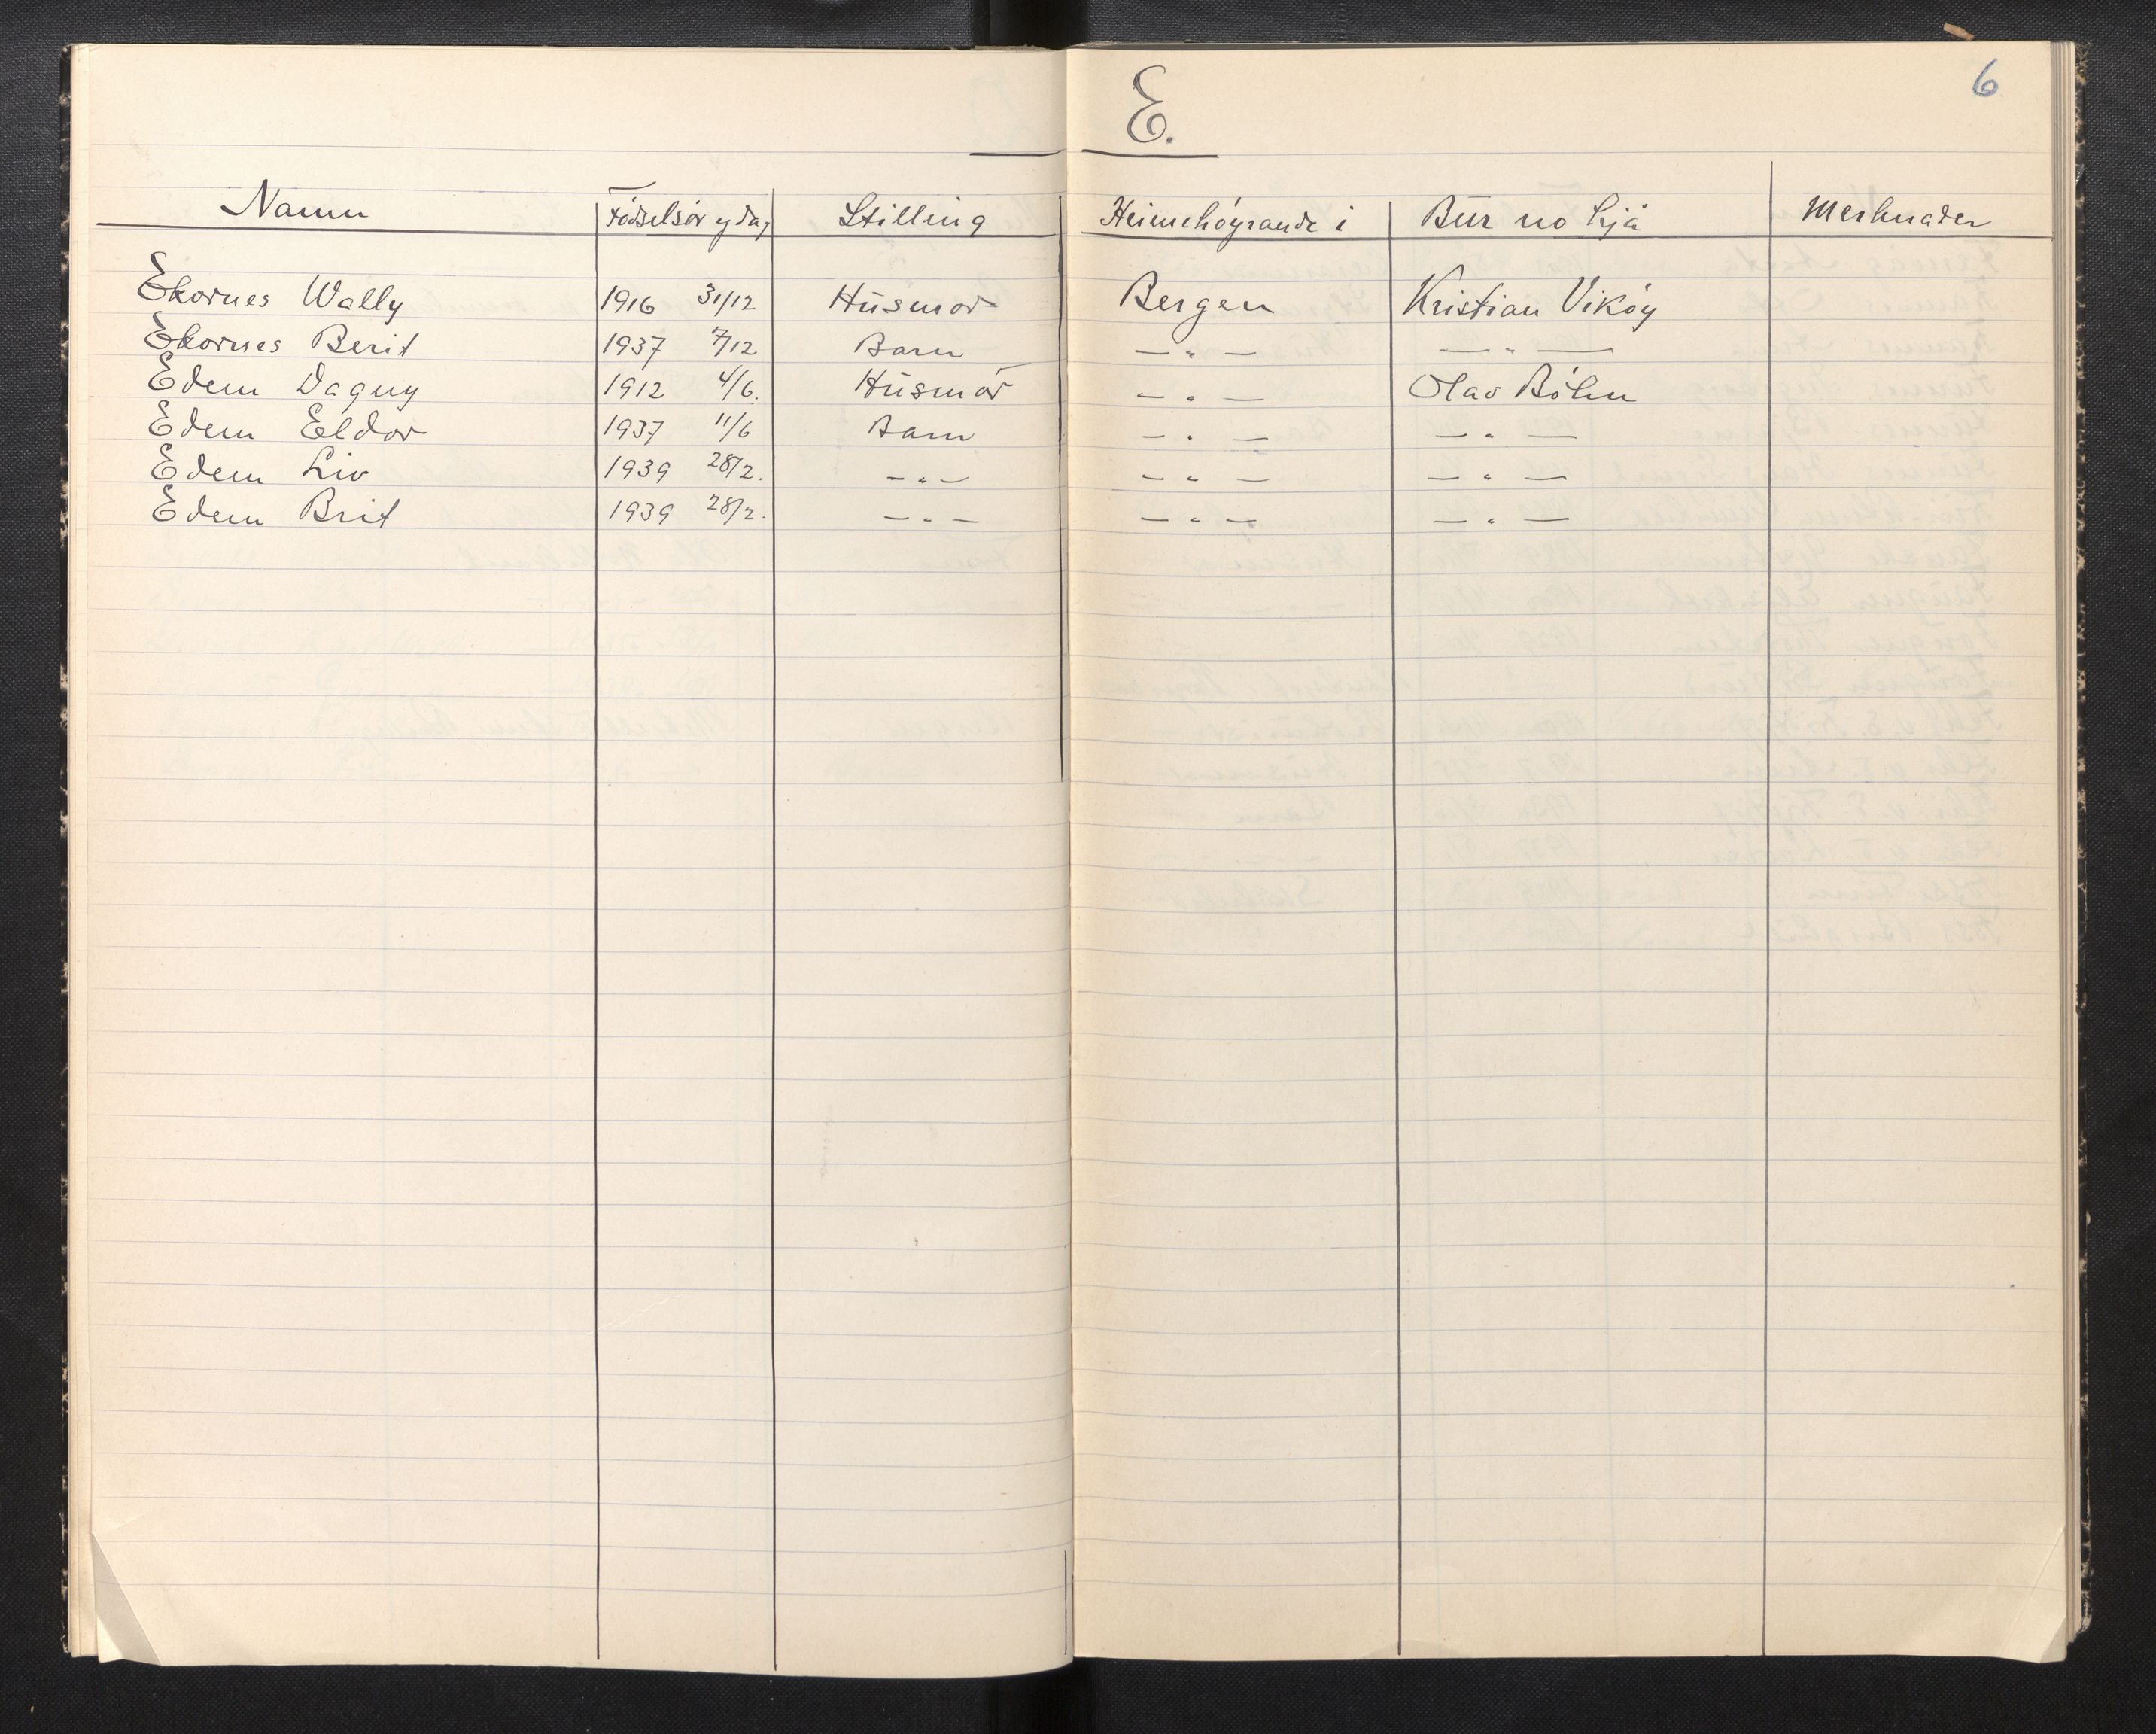 6
E.
Namn Fødselsår og dag Stilling Heimehøyrande i Bur no hjå Merknader
Ekornes Wally 1916 31/12 Husmor Bergen Kristian Vikøy
Ekornes Berit 1937 7/12 Barn — " — — " —
Edem Dagny 1912 4/6. Husmor — " — Olav Bøhn
Edem Eldor 1937 11/6 Barn — " — — " —
Edem Liv 1939 28/2. — " — — " — — " —
Edem Brit 1939 28/2. — " — — " — — " —